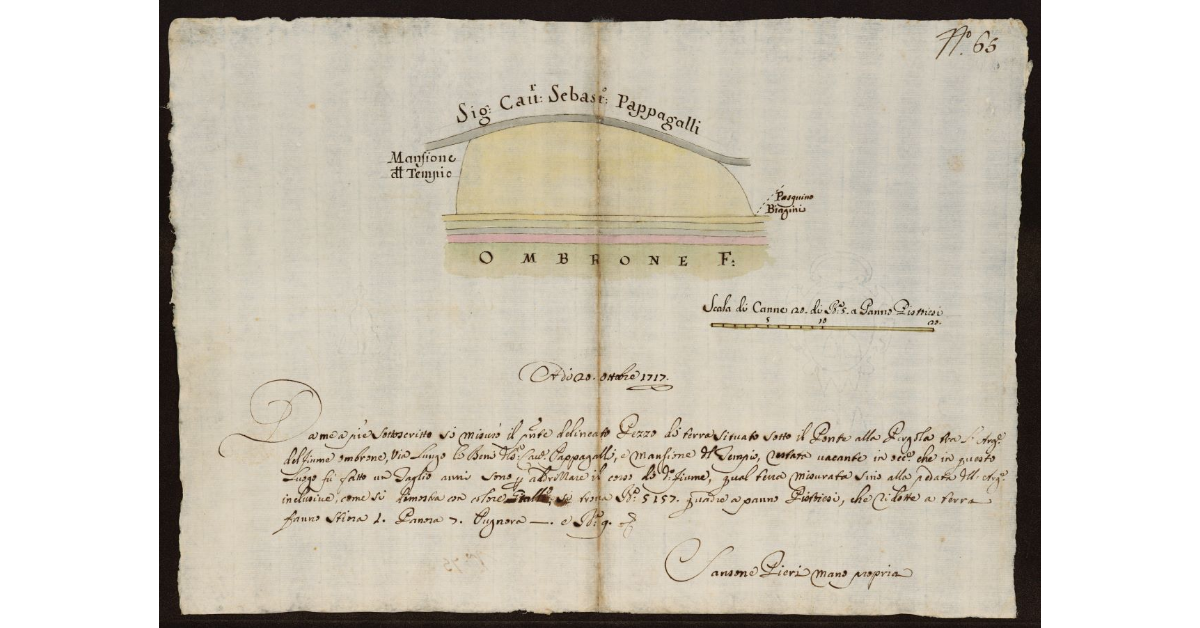 N.º 65
Sig: Cau:r Sebast:º Pappagalli
Mansione
dl Tempio
Pasquino
Biagini
OMBRONE F:
Scala di Canne 20. di B.ª 5. a Panno Pistoiesi
5 10 20.
A dì 20. Ottobre 1717.
Da me a piè sottoscritto si misurò il pnte delineato Pezzo di terra situato sotto il Ponte alla Pergola tra l'Arg.e
del fiume ombrone, via lungo Beni Sig. Cav. Pappagalli, e Mansione dl Tempio, restata vacante in occ.e che in questo
luogo fu fatto un Taglio anni sono p adrizzare il corso di d.º fiume, qual terra misurata sino alla pedata dell'Arg.e
inclusive, come si dimostra con colore giallo, se trova B.ª 5157. quadre a panno Pistoiesi, che ridotte a terra
fanno Stiora 1. Panora 7. Pugnora —. e B.ª 9.
Sansone Pieri mano propria